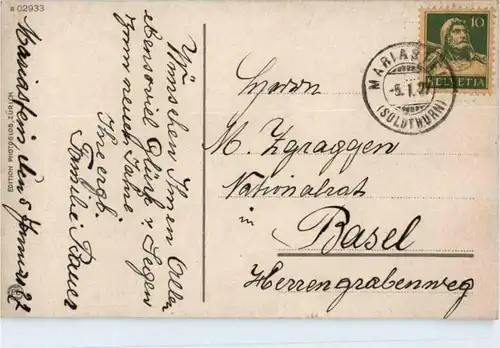 B 02933
EDITION PHOTOGLOB, ZÜRICH
Mariastein den 5 Januar 22
Wünschen Ihnen Allen
ebensoviel Glück & Segen
zum neuen Jahre
Ihre ergb.
Familie: Bauer
10
HELVETIA
MARIAS
-5.I.2
(SOLOTHURN)
Herrn
M. Zgraggen
Nationalrat
in
Basel
Herrengrabenweg